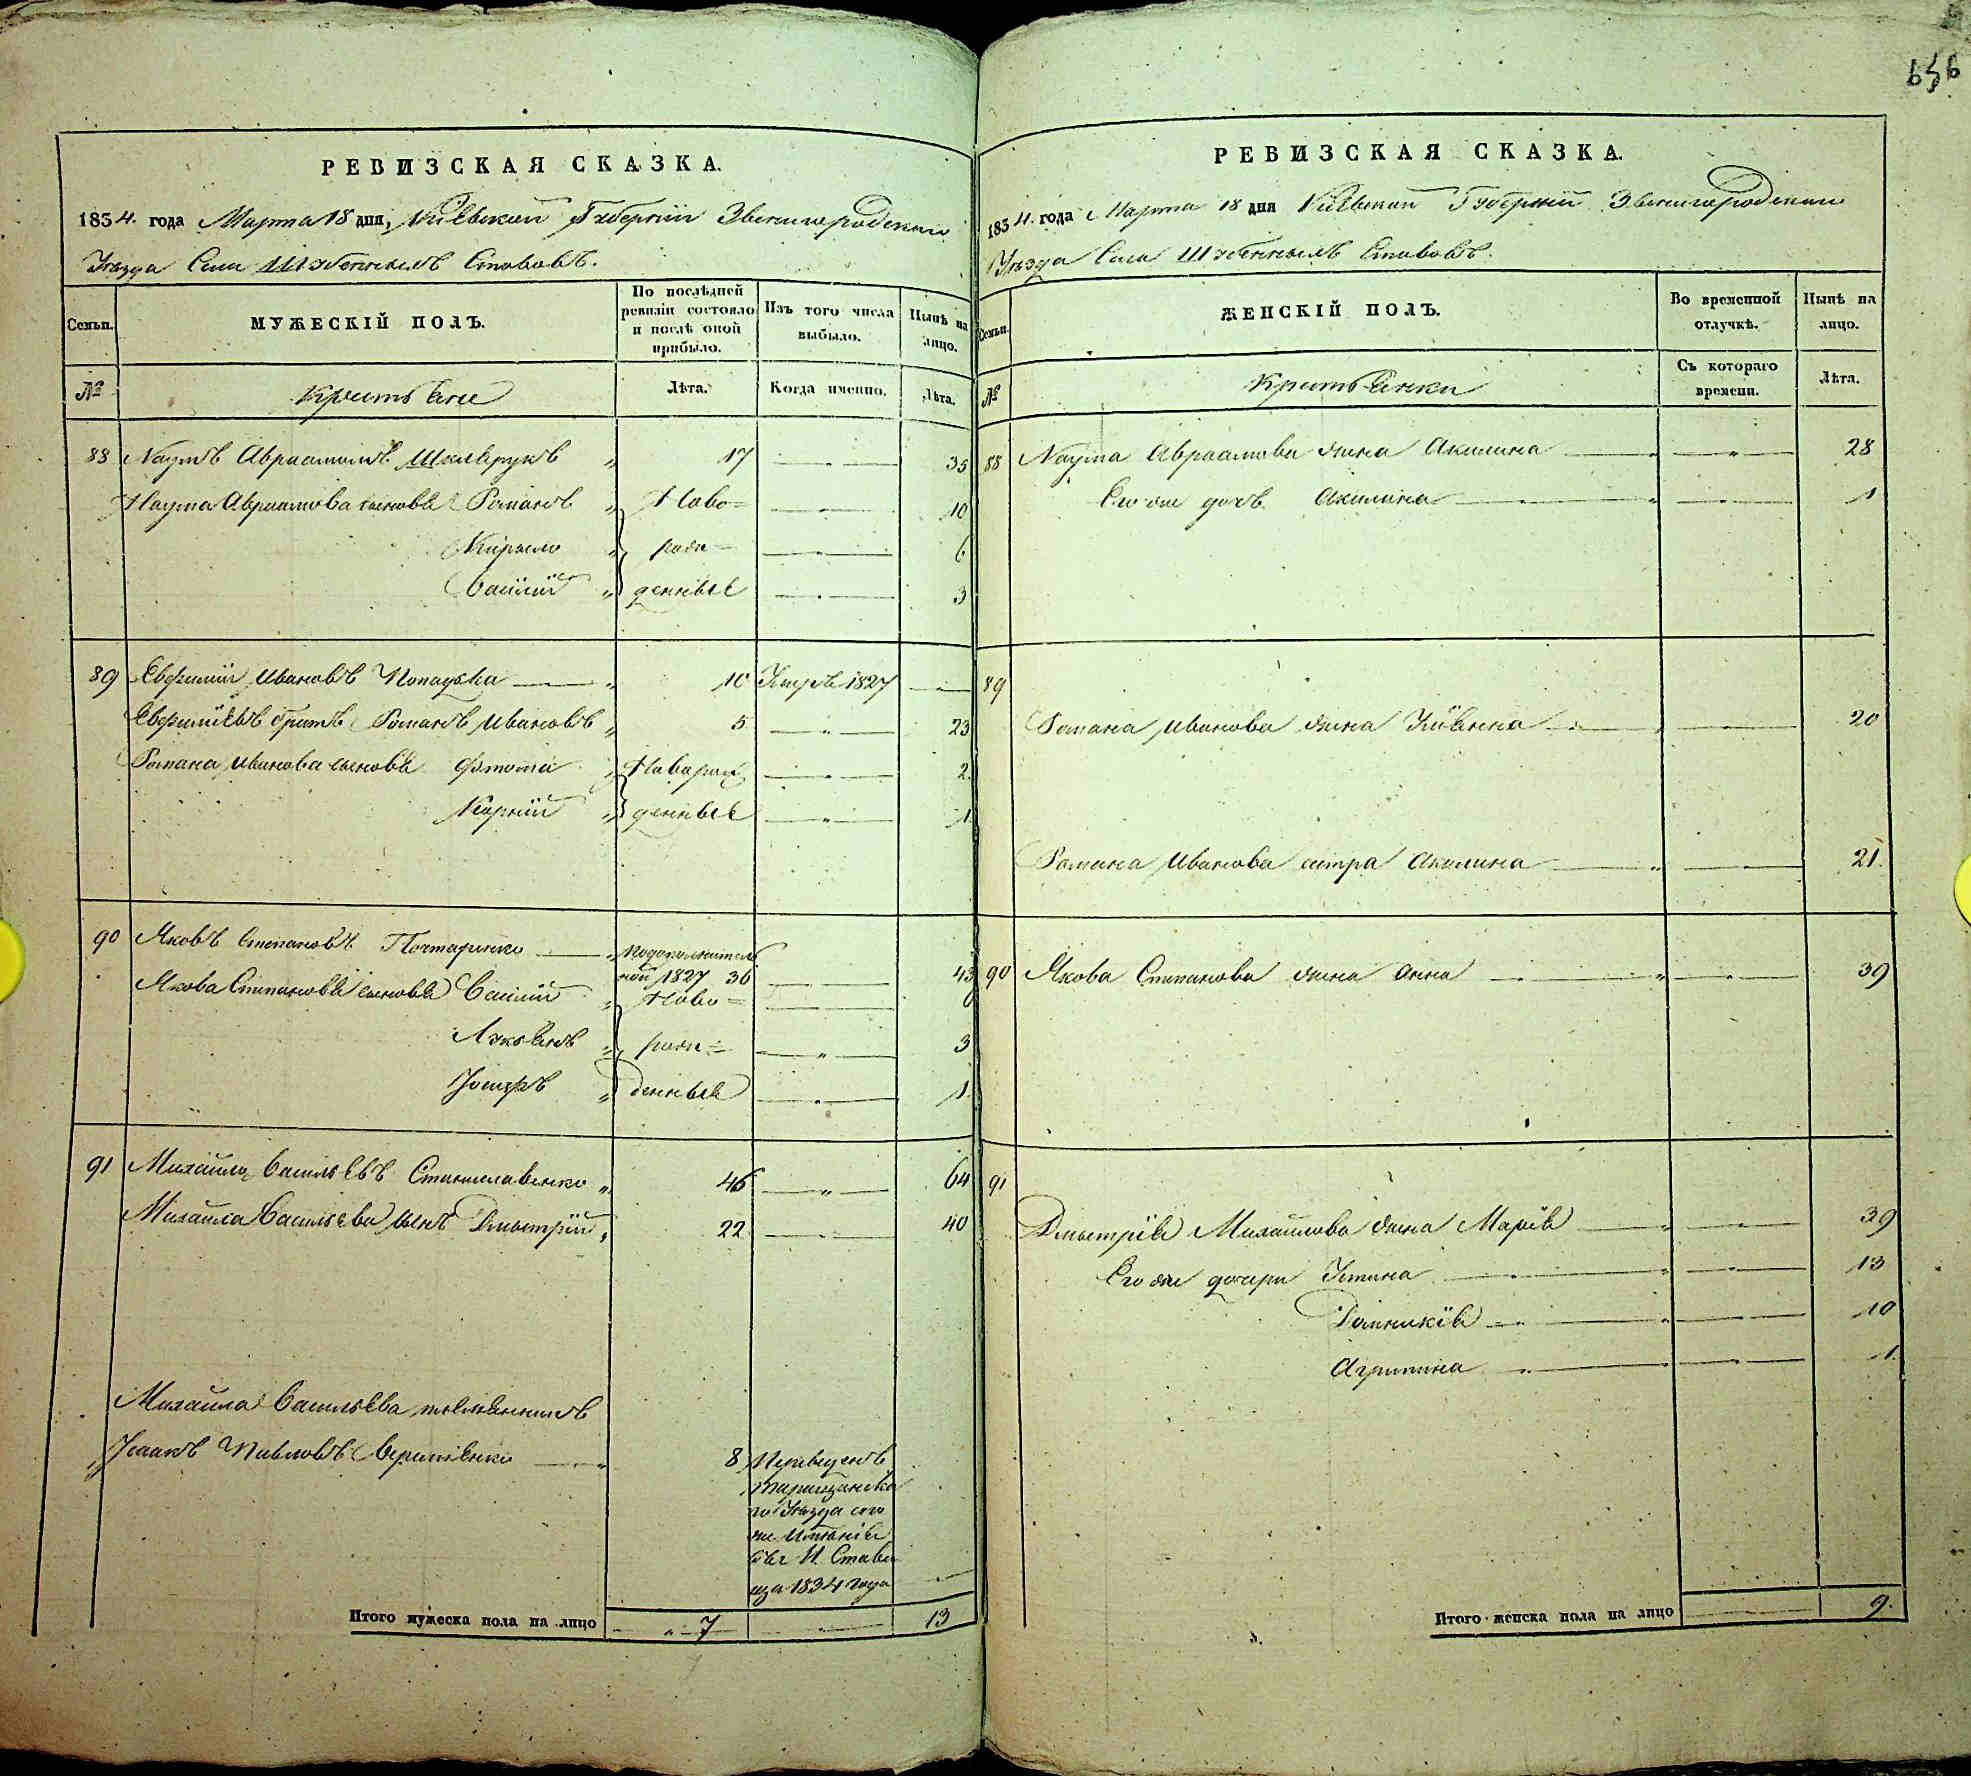 656
РЕВИЗСКАЯ СКАЗКА.
1834. года Марта 18 дня, Кіевской Губерніи Звенигородскаго
Уѣзда Села Шубенныхъ Ставовъ.
Семьи.
МУЖЕСКІЙ ПОЛЪ.
По послѣдней ревизіи состояло и послѣ оной прибыло.
Изъ того числа выбыло.
Нынѣ на лицо.
№
Крестьяне
Лѣта.
Когда именно.
Лѣта.
88 Наумъ Авраамовъ 17 35
Наума Авраамова сыновья Романъ Ново= 10
Кирыло рож= 6
Василій денные 3
89 Евфимій Ивановъ 10 Умръ 1827
Евфиміевъ братъ Романъ Ивановъ 5 23
Романа Иванова сыновья Фтома Новорож 2
Корній денные 1
90 Яковъ Степановъ по дополнитель
ной 1827 36 43
Якова Степанова сыновья Василій Ново= 6
Лукьянъ рож= 3
Іосифъ денные 1
91 Михайло Васильевъ Станиславенко 46 64
Михайла Васильева сынъ Дмытрій 22 40
Михайла Васильева племянникъ
Исаакъ Павловъ 8 Переведенъ
Таращанска
го Уѣзда сего
же Имѣнія
въ М. Стави
ща 1834 года
Итого мужеска пола на лицо 7 13
РЕВИЗСКАЯ СКАЗКА.
1834. года Марта 18 дня Кіевской Губерніи Звенигородскаго
Уѣзда Села Шубенныхъ Ставовъ.
Семьи.
ЖЕНСКІЙ ПОЛЪ.
Во временной отлучкѣ.
Нынѣ на лицо.
№
Крестьянки
Съ котораго времени.
Лѣта.
88 Наума Авраамова жена Акилина 28
Его же дочь Акилина 1
89
Романа Иванова жена Уліянна 20
Романа Иванова сестра Акилина 21.
90 Якова Степанова жена Анна 39
91
Дмытрія Михайлова жена Марія 39
Его же дочери Устина 13
Домникія 10
Агрипина 1.
Итого женска пола на лицо 9.